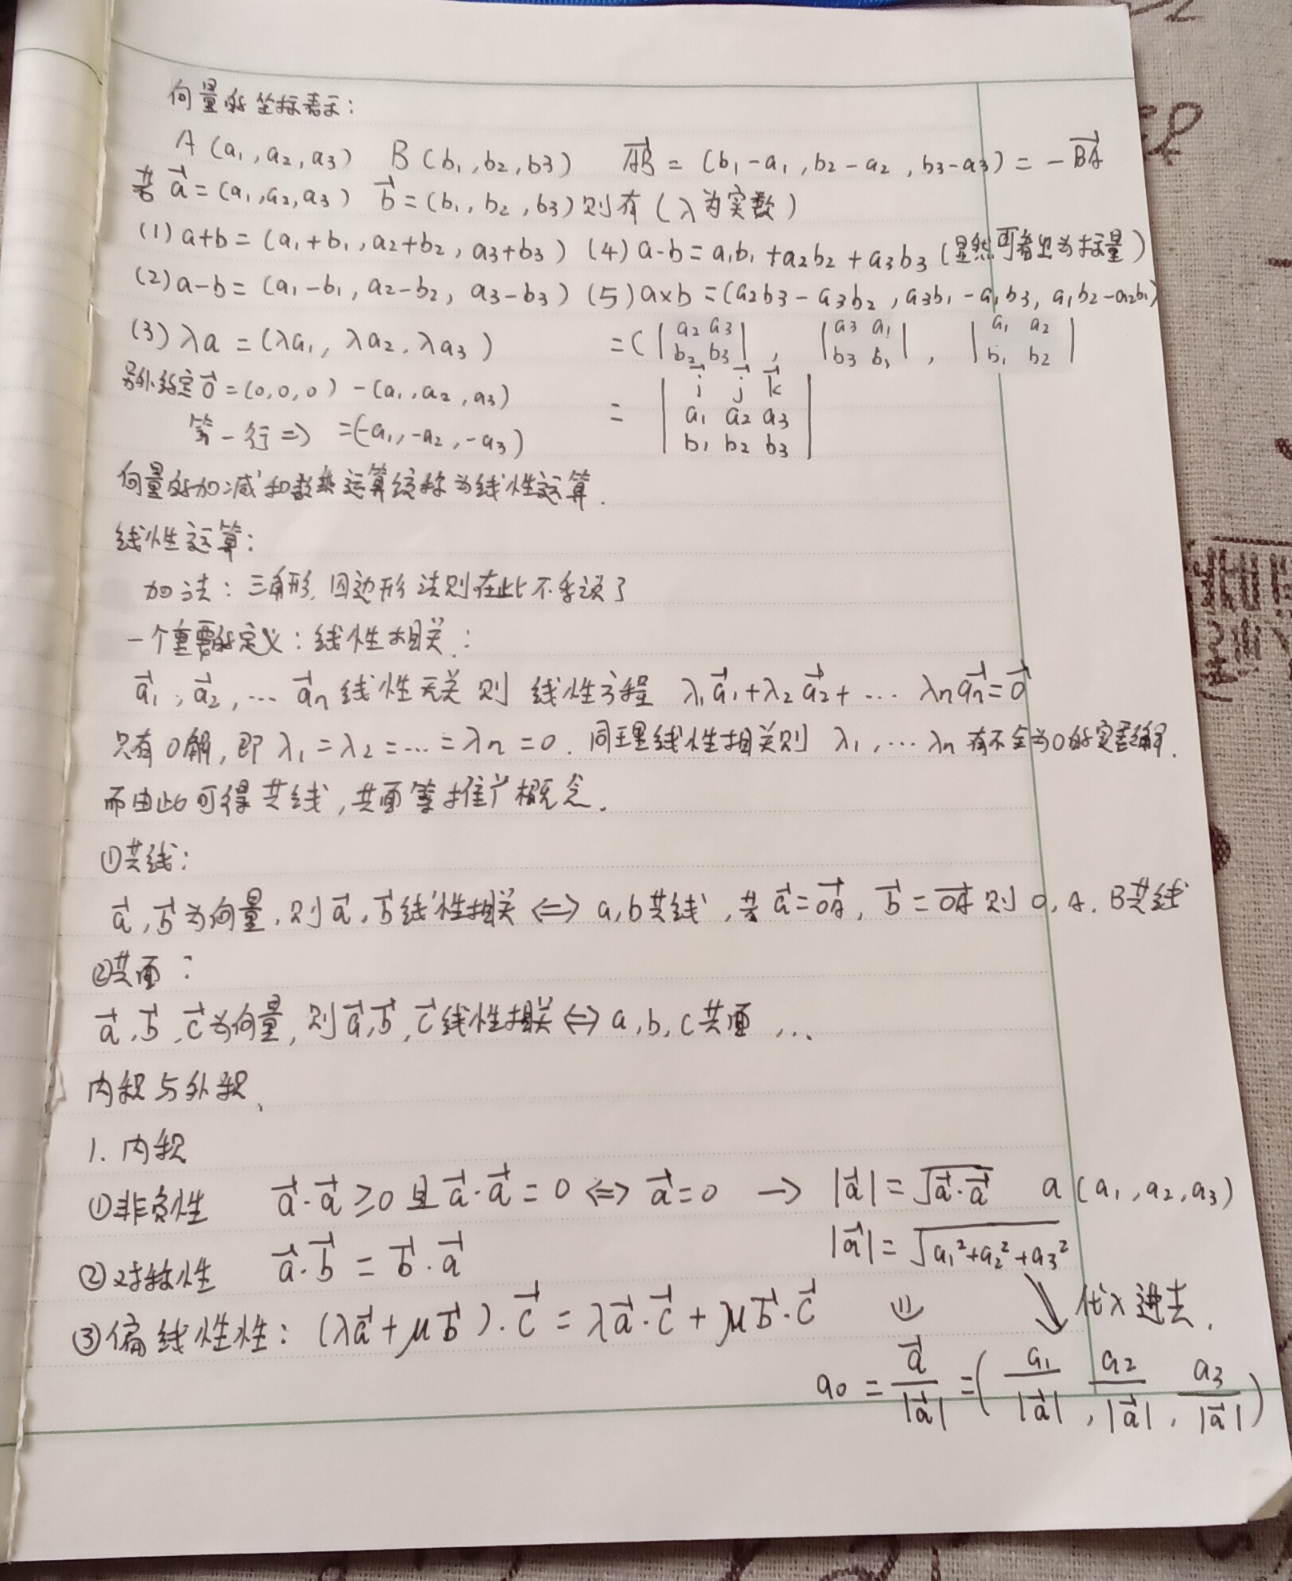 向量的坐标表示：
A(a₁,a₂,a₃) B(b₁,b₂,b3) AB→ = (b₁-a₁,b₂-a₂,b3-a3) = -BA→
若 a→=(a₁,a₂,a3) b→=(b₁,b₂,b3)则有(λ为实数)
(1) a+b=(a₁+b₁,a2+b2,a3+b3) (4) a·b=a₁b₁+a2b2+a3b3(显然可看出为标量)
(2) a-b=(a₁-b₁,a2-b2,a3-b3) (5) a×b=(a2b3-a3b2,a3b₁-a₁b3,a₁b2-a2b₁)
(3) λa=(λa₁,λa2,λa3) =(|a2 a3 / b2 b3|, |a3 a₁ / b3 b₁|, |a₁ a2 / b₁ b2|
另外约定 0→=(0,0,0) -(a₁,a₂,a3)
第一行⇒ =(-a₁,-a₂,-a3)
= |i→ j→ k→ / a₁ a2 a3 / b₁ b2 b3|
向量的加减和数乘运算统称为线性运算.
线性运算：
加法：三角形,四边形法则在此不多说了
一个重要的定义：线性相关：
a→₁,a→₂,…a→n线性无关则 线性方程 λ₁a→₁+λ₂a→₂+…λna→n=0→
只有0解,即λ₁=λ₂=…=λn=0.同理线性相关则 λ₁,…λn有不全为0的实数解.
而由此可得共线,共面等推广概念.
①共线：
a→,b→为向量,则a→,b→线性相关⇔a,b共线,若a→=OA→,b→=OA→则O,A,B共线
②共面：
a→,b→,c→为向量,则a→,b→,c→线性相关⇔a,b,c共面,…
内积与外积、
1.内积
①非负性 a→·a→≥0且a→·a→=0⇔a→=0 → |a→|=√(a→·a→) a(a₁,a₂,a₃)
|a→|=√(a₁²+a₂²+a₃²)
②对称性 a→·b→=b→·a→
③偏线性性：(λa→+μb→)·c→=λa→·c→+μb→·c→ ⇓ ↘代入进去.
a₀=a→/|a→|=(a₁/|a→|,a2/|a→|,a3/|a→|)